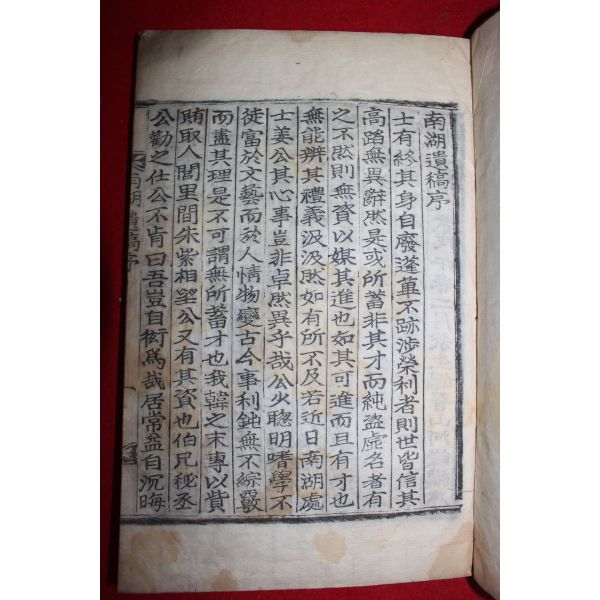 南湖遺稿序
士有終其身自廢蓬蓽不跡涉榮利者則世皆信其
高蹈無異辭然是或所蓄非其才而純盜虛名者有
之不然則無資以媒其進也如其可進而且有才也
無能辨其禮義汲汲然如有所不及若近日南湖處
士姜公其心事豈非卓然異乎哉公少聰明嗜學不
徒富於文藝而於人情物變古今事利鈍無不綜竅
而盡其理是不可謂無所蓄才也我韓之末專以貲
賄取人閭里間朱紫相望公又有其資也伯兄秘丞
公勸之仕公不肯曰吾豈自衒爲哉居常益自沉晦
南湖遺稿序